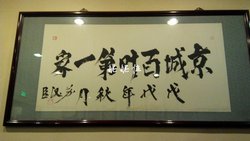 京城百时第一家
戊戌年秋月